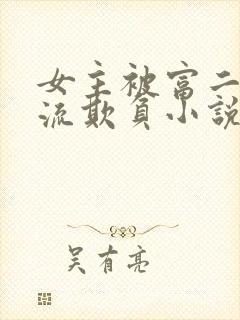 女主被富二
流欺負小説
吴有亮